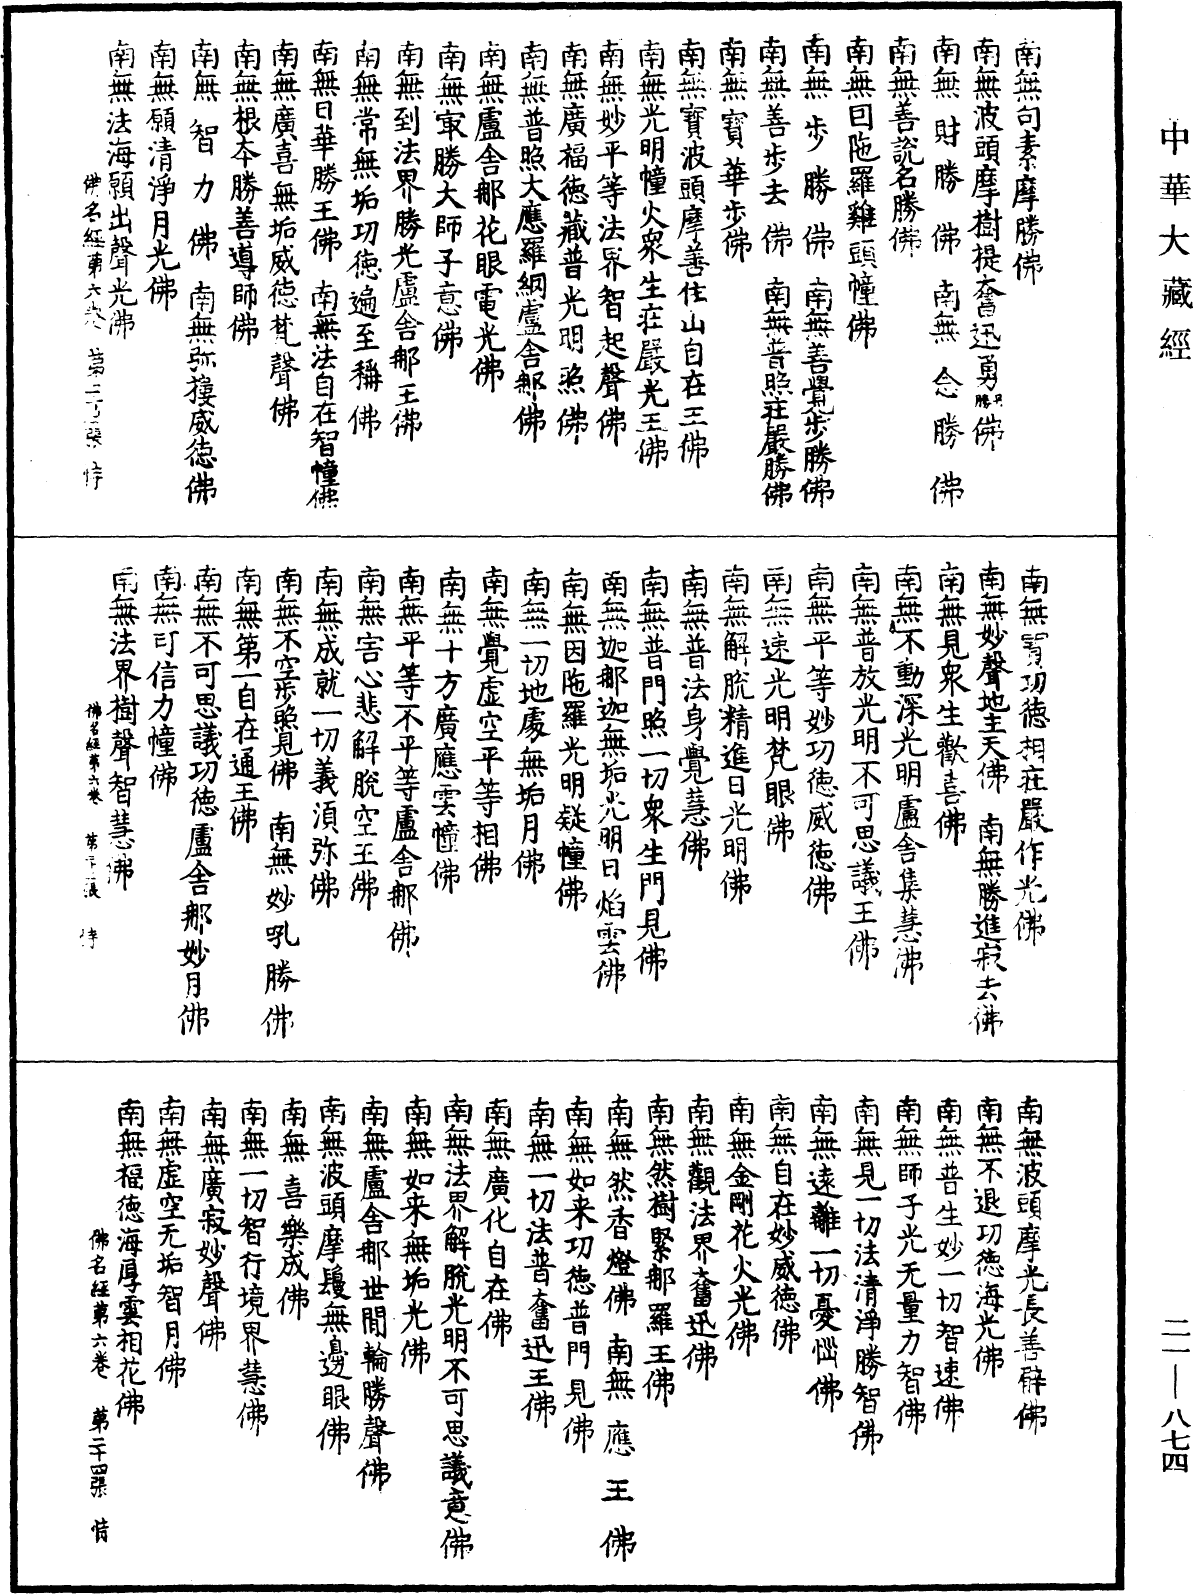 中華大藏經
南無句素摩勝佛
南無波頭摩樹提奮迅勇勝佛
南無財勝佛 南無念勝佛
南無善說名勝佛
南無因陁羅雞頭幢佛
南無步勝佛 南無善覺步勝佛
南無善步去佛 南無普照莊嚴勝佛
南無寶華步佛
南無寶波頭摩善住山自在王佛
南無光明幢火衆生莊嚴光王佛
南無妙平等法界智起聲佛
南無廣福德藏普光明照佛
南無普照大應羅網盧舍那佛
南無盧舍那花眼電光佛
南無㝡勝大師子意佛
南無到法界勝光盧舍那王佛
南無常無垢功德遍至稱佛
南無日華勝王佛 南無法自在智幢佛
南無廣喜無垢威德梵聲佛
南無根本勝善導師佛
南無智力佛 南無弥樓威德佛
南無願清淨月光佛
南無法海願出聲光佛
佛名經第六卷 第二十二張
南無寶功德相莊嚴作光佛
南無妙聲地主天佛 南無勝進寂去佛
南無見衆生歡喜佛
南無不動深光明盧舍集慧佛
南無普放光明不可思議王佛
南無平等妙功德威德佛
南無速光明梵眼佛
南無解脫精進日光明佛
南無普法身覺慧佛
南無普門照一切衆生門見佛
南無迦那迦無垢光明日焰雲佛
南無因陁羅光明疑幢佛
南無一切地處無垢月佛
南無覺虛空平等相佛
南無十方廣應雲幢佛
南無平等不平等盧舍那佛
南無害心悲解脫空王佛
南無成就一切義須弥佛
南無不空步照見佛 南無妙吼勝佛
南無第一自在通王佛
南無不可思議功德盧舍那妙月佛
南無可信力幢佛
南無法界樹聲智慧佛
佛名經第六卷 第二十三張
南無波頭摩光長善臂佛
南無不退功德海光佛
南無普生妙一切智速佛
南無師子光无量力智佛
南無見一切法清淨勝智佛
南無遠離一切憂惱佛
南無自在妙威德佛
南無金剛花火光佛
南無觀法界奮迅佛
南無然樹緊那羅王佛
南無然香燈佛 南無應王佛
南無如来功德普門見佛
南無一切法普奮迅王佛
南無廣化自在佛
南無法界解脫光明不可思議意佛
南無如来無垢光佛
南無盧舍那世間輪勝聲佛
南無波頭摩鬘無邊眼佛
南無喜樂成佛
南無一切智行境界慧佛
南無廣寂妙聲佛
南無虛空无垢智月佛
南無福德海厚雲相花佛
佛名經第六卷 第二十四張
二一—八七四